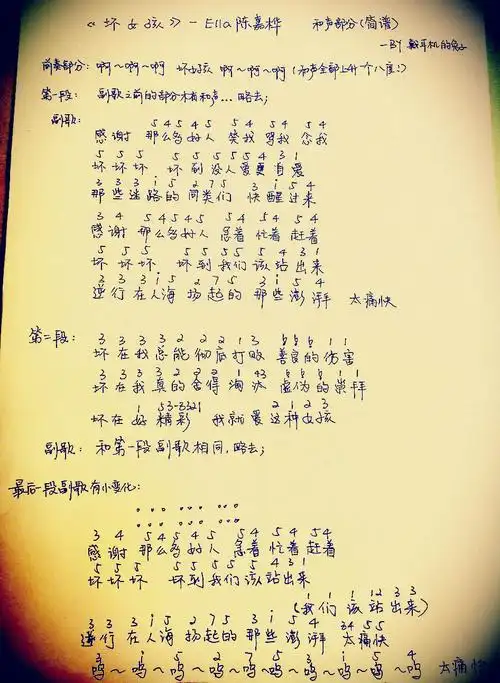 《坏女孩》- Ella 陈嘉桦 和声部分(简谱)
-BY 戴耳机的兔子
前奏部分: 啊~啊~啊 坏女孩 啊~啊~啊 (和声全部上升个八度!)
第一段: 副歌之前的部分木有和声...略去;
副歌: 5 4 5 4 5 5 4 5 4 5 4
感谢 那么多好人 笑我 骂我 怨我
5 5 5 5 5 5 5 5 4 3 1
坏坏坏 坏到没人爱更自爱
3 3 3 i 5 2 7 5 3 i 5 4
那些迷路的同类们 快醒过来
3 4 5 4 5 4 5 5 4 5 4 5 4
感谢 那么多好人 急着 忙着 赶着
5 5 5 5 5 5 5 5 4 3 1
坏坏坏 坏到我们该站出来
3 3 3 i 5 2 7 5 3 i 5 4
逆行在人海 扬起的那些澎湃 太痛快
第二段: 3 3 3 3 2 2 2 1 3 6 6 6 1 1
坏在我总能彻底打败 善良的伤害
3 3 3 3 2 2 2 1 43 6 6 6 1 1
坏在我真的舍得淘汰 虚伪的崇拜
1 53-3321 2 1 2 3
坏在好精彩 我就爱这种女孩
副歌: 和第一段副歌相同,略去;
最后一段副歌有小变化:
... ... ...
... ... ...
3 4 5 4 5 4 5 5 4 5 4 5 4
感谢 那么多好人 急着 忙着 赶着
5 5 5 5 5 5 5 5 4 3 1
坏坏坏 坏到我们该站出来
1 1 1 12 3 3
(我们该站出来)
3 3 3 i 5 2 7 5 3 i 5 4 34 55
逆行在人海 扬起的那些澎湃 太痛快
3 i 5 2 7 5 3 i 5 4
呜~呜~呜~呜~呜~呜~呜~呜~呜~呜 太痛快